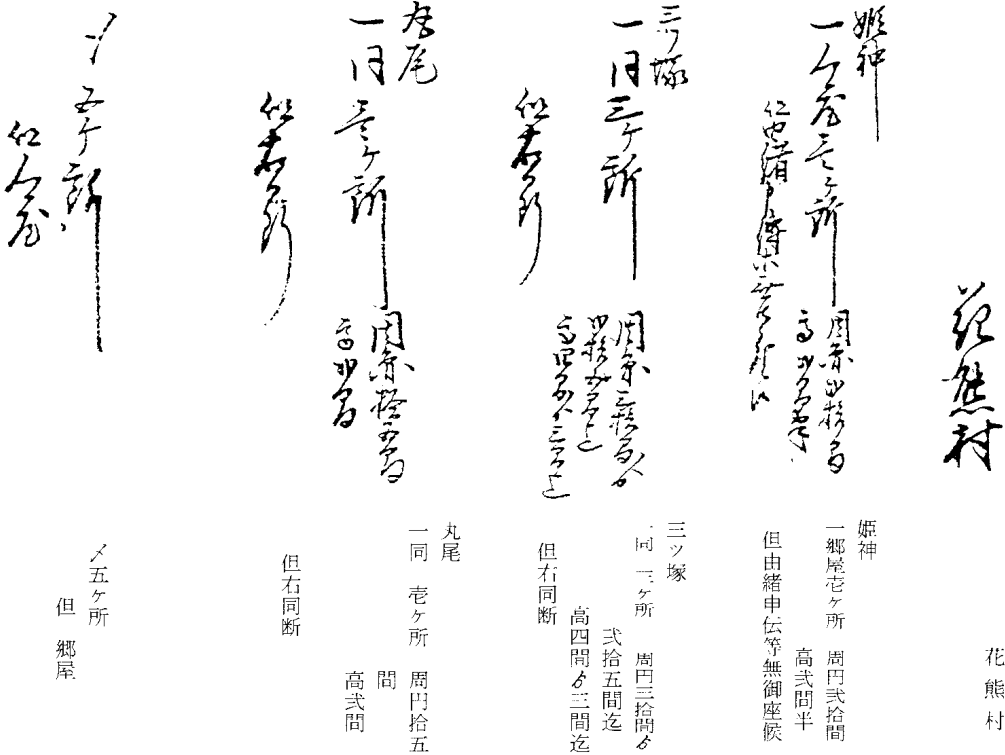 花熊村
姫神
一郷屋壱ヶ所 周円弐拾間
高弐間半
但由緒申伝等無御座候
三ツ塚
一同三ヶ所 周円三拾間ゟ
弐拾五間迄
高四間ゟ三間迄
但右同断
丸尾
一同壱ヶ所 周円拾五間
高弐間
但右同断
〆五ヶ所
但郷屋
花熊村
姫神
一郷屋壱ヶ所 周円弐拾間
高弐間半
但由緒申伝等無御座候
三ツ塚
一同 三ヶ所 周円三拾間ゟ
弐拾五間迄
高四間ゟ三間迄
但右同断
丸尾
一同 壱ヶ所 周円拾五
間
高弐間
但右同断
〆五ヶ所
但 郷屋